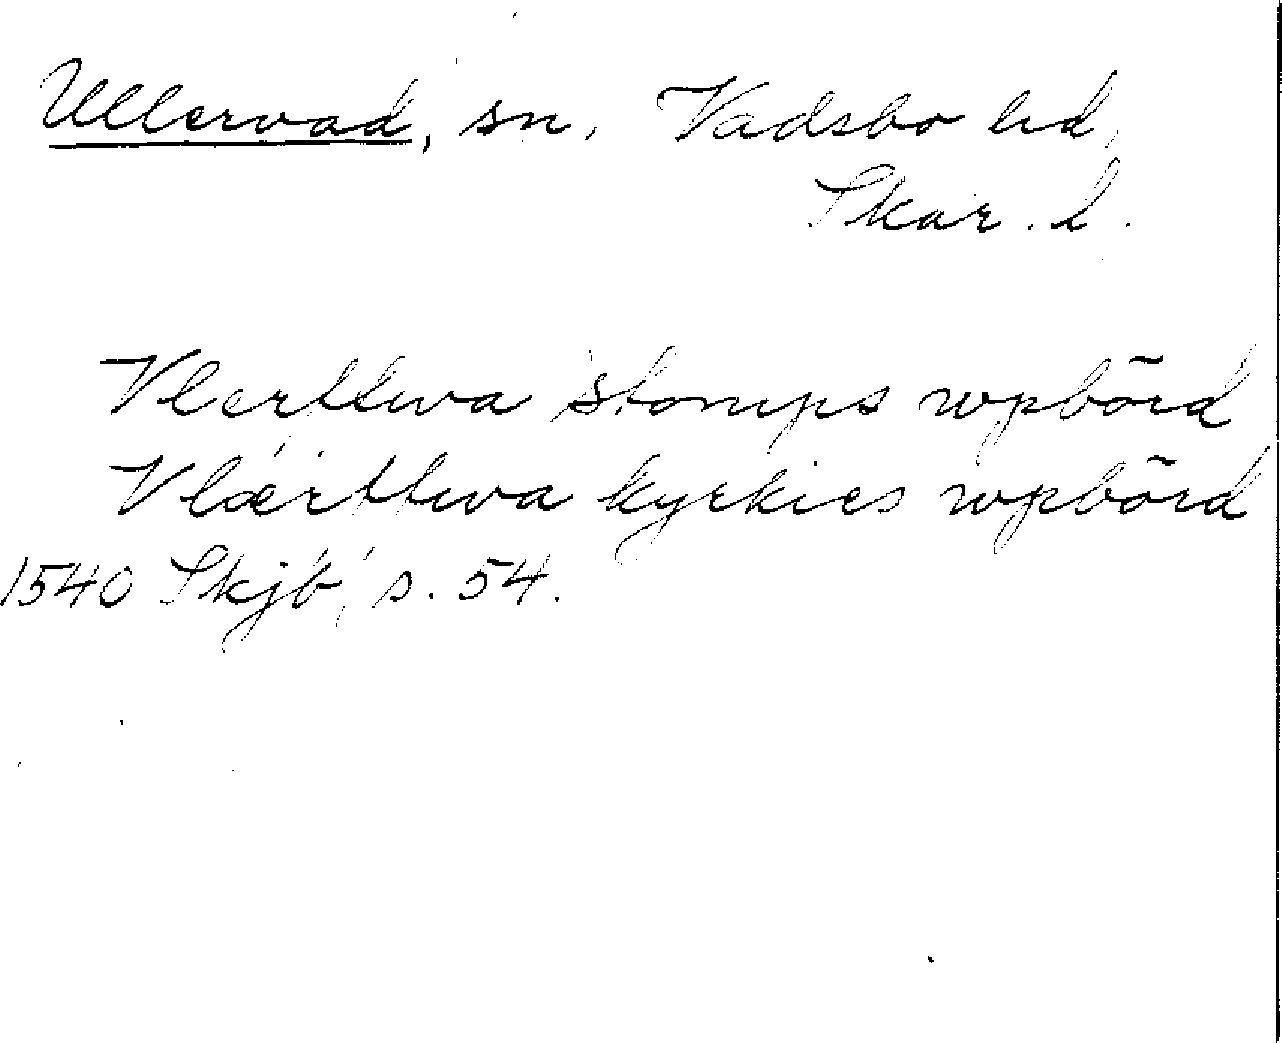 Ullervad, sn, Vadsbo hd,
Skar. l.
Vlerttwa stomps wpbörd
Vlærttwa kyrkies wpbörd
1540 Skjb, s. 54.